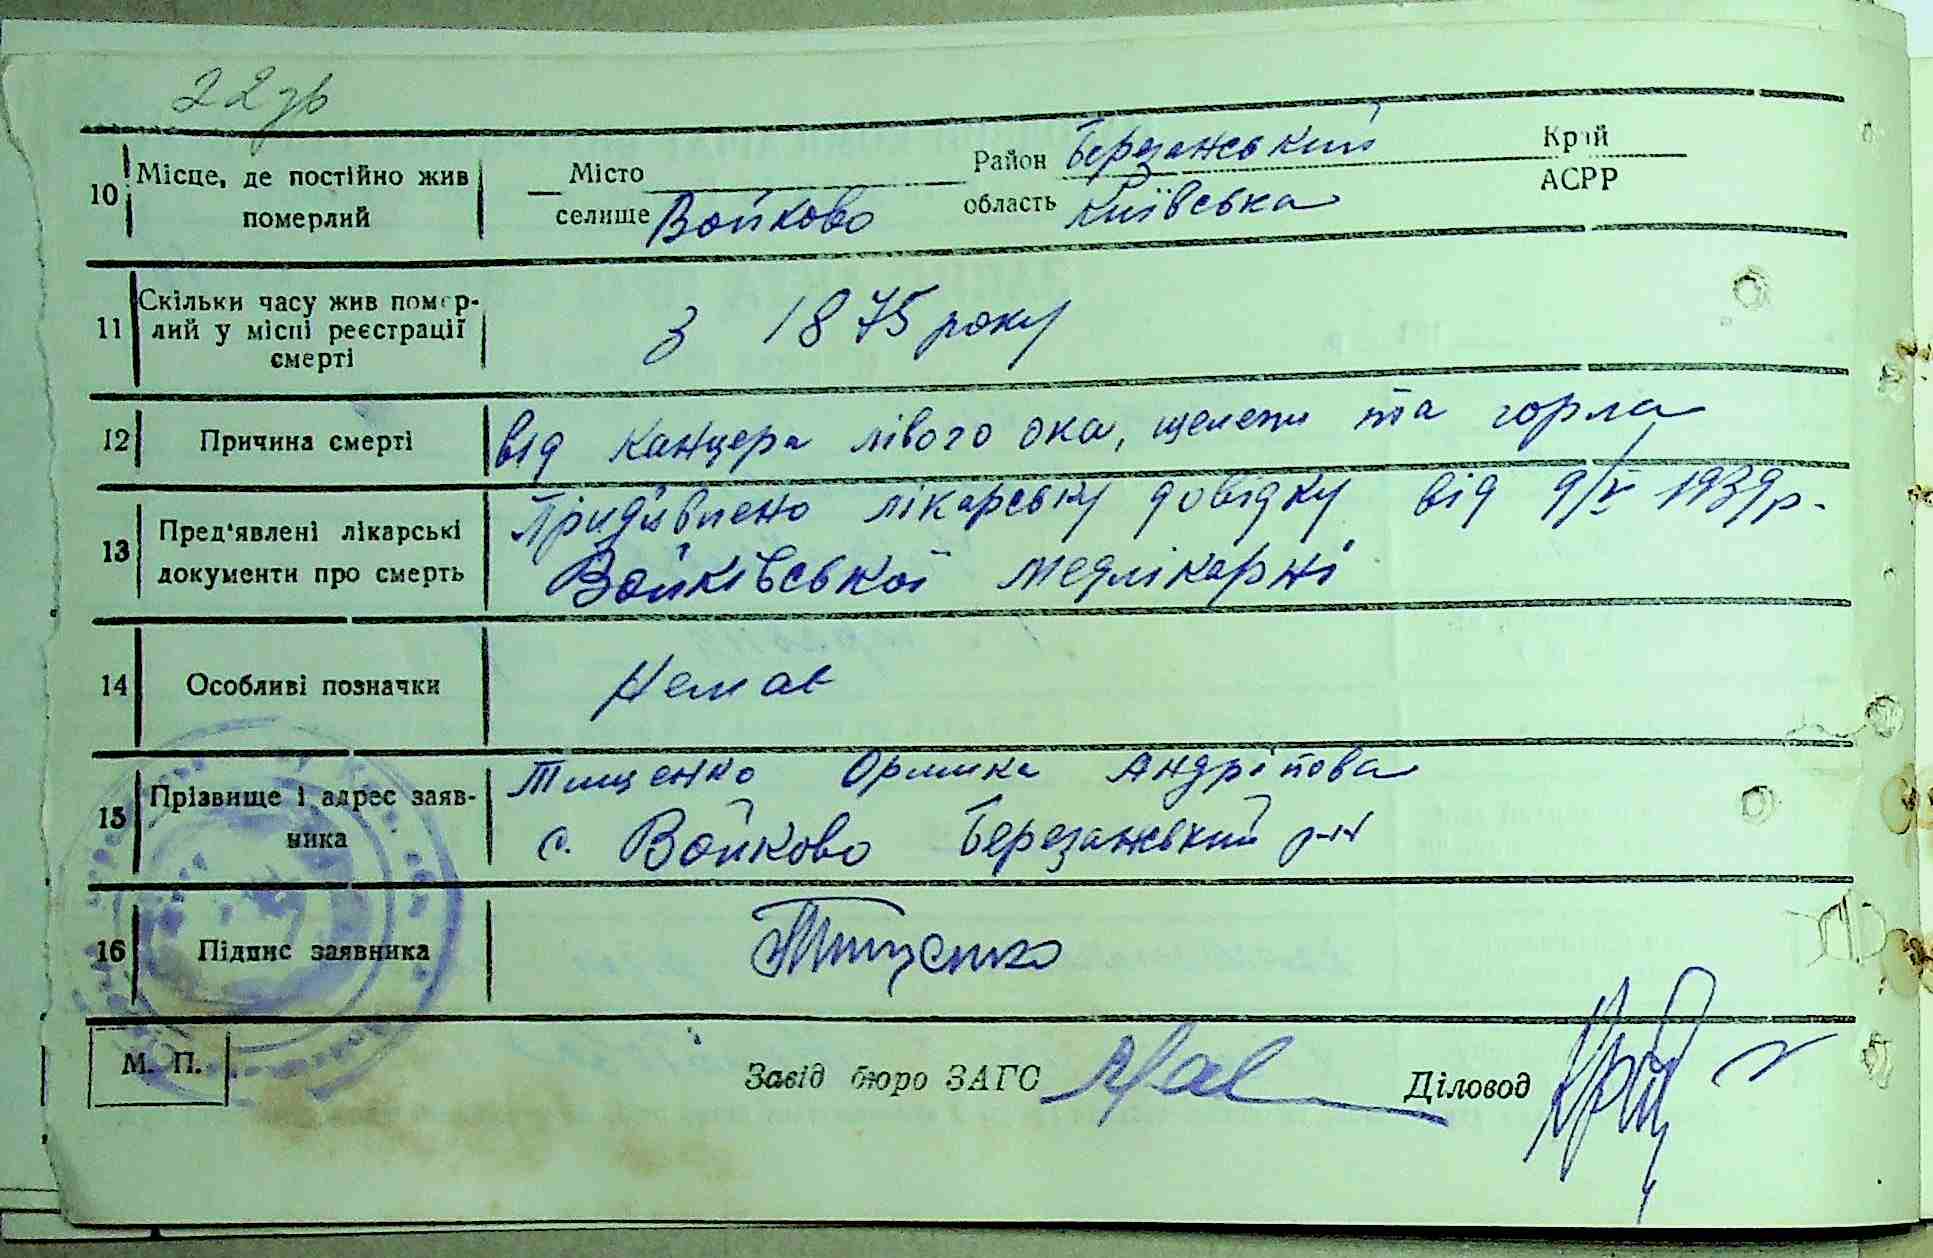 22зв
10 Місце, де постійно жив померлий Місто селище Войково Район Березанський область Київська Край АСРР
11 Скільки часу жив помер-
лий у місці реєстрації
смерті
з 1875 року
12 Причина смерті від канцера лівого ока, щелепи та горла
13 Пред'явлені лікарські документи про смерть
Придявлено лікарську довідку від 9/V 1939 р.
Войківської медлікарні
14 Особливі позначки Немає
15 Прізвище і адрес заяв-
ника
Тищенко Оришка Андріївова
с. Войково Березанський р-н
16 Підпис заявника Тищенко
М. П. Завід бюро ЗАГС Діловод